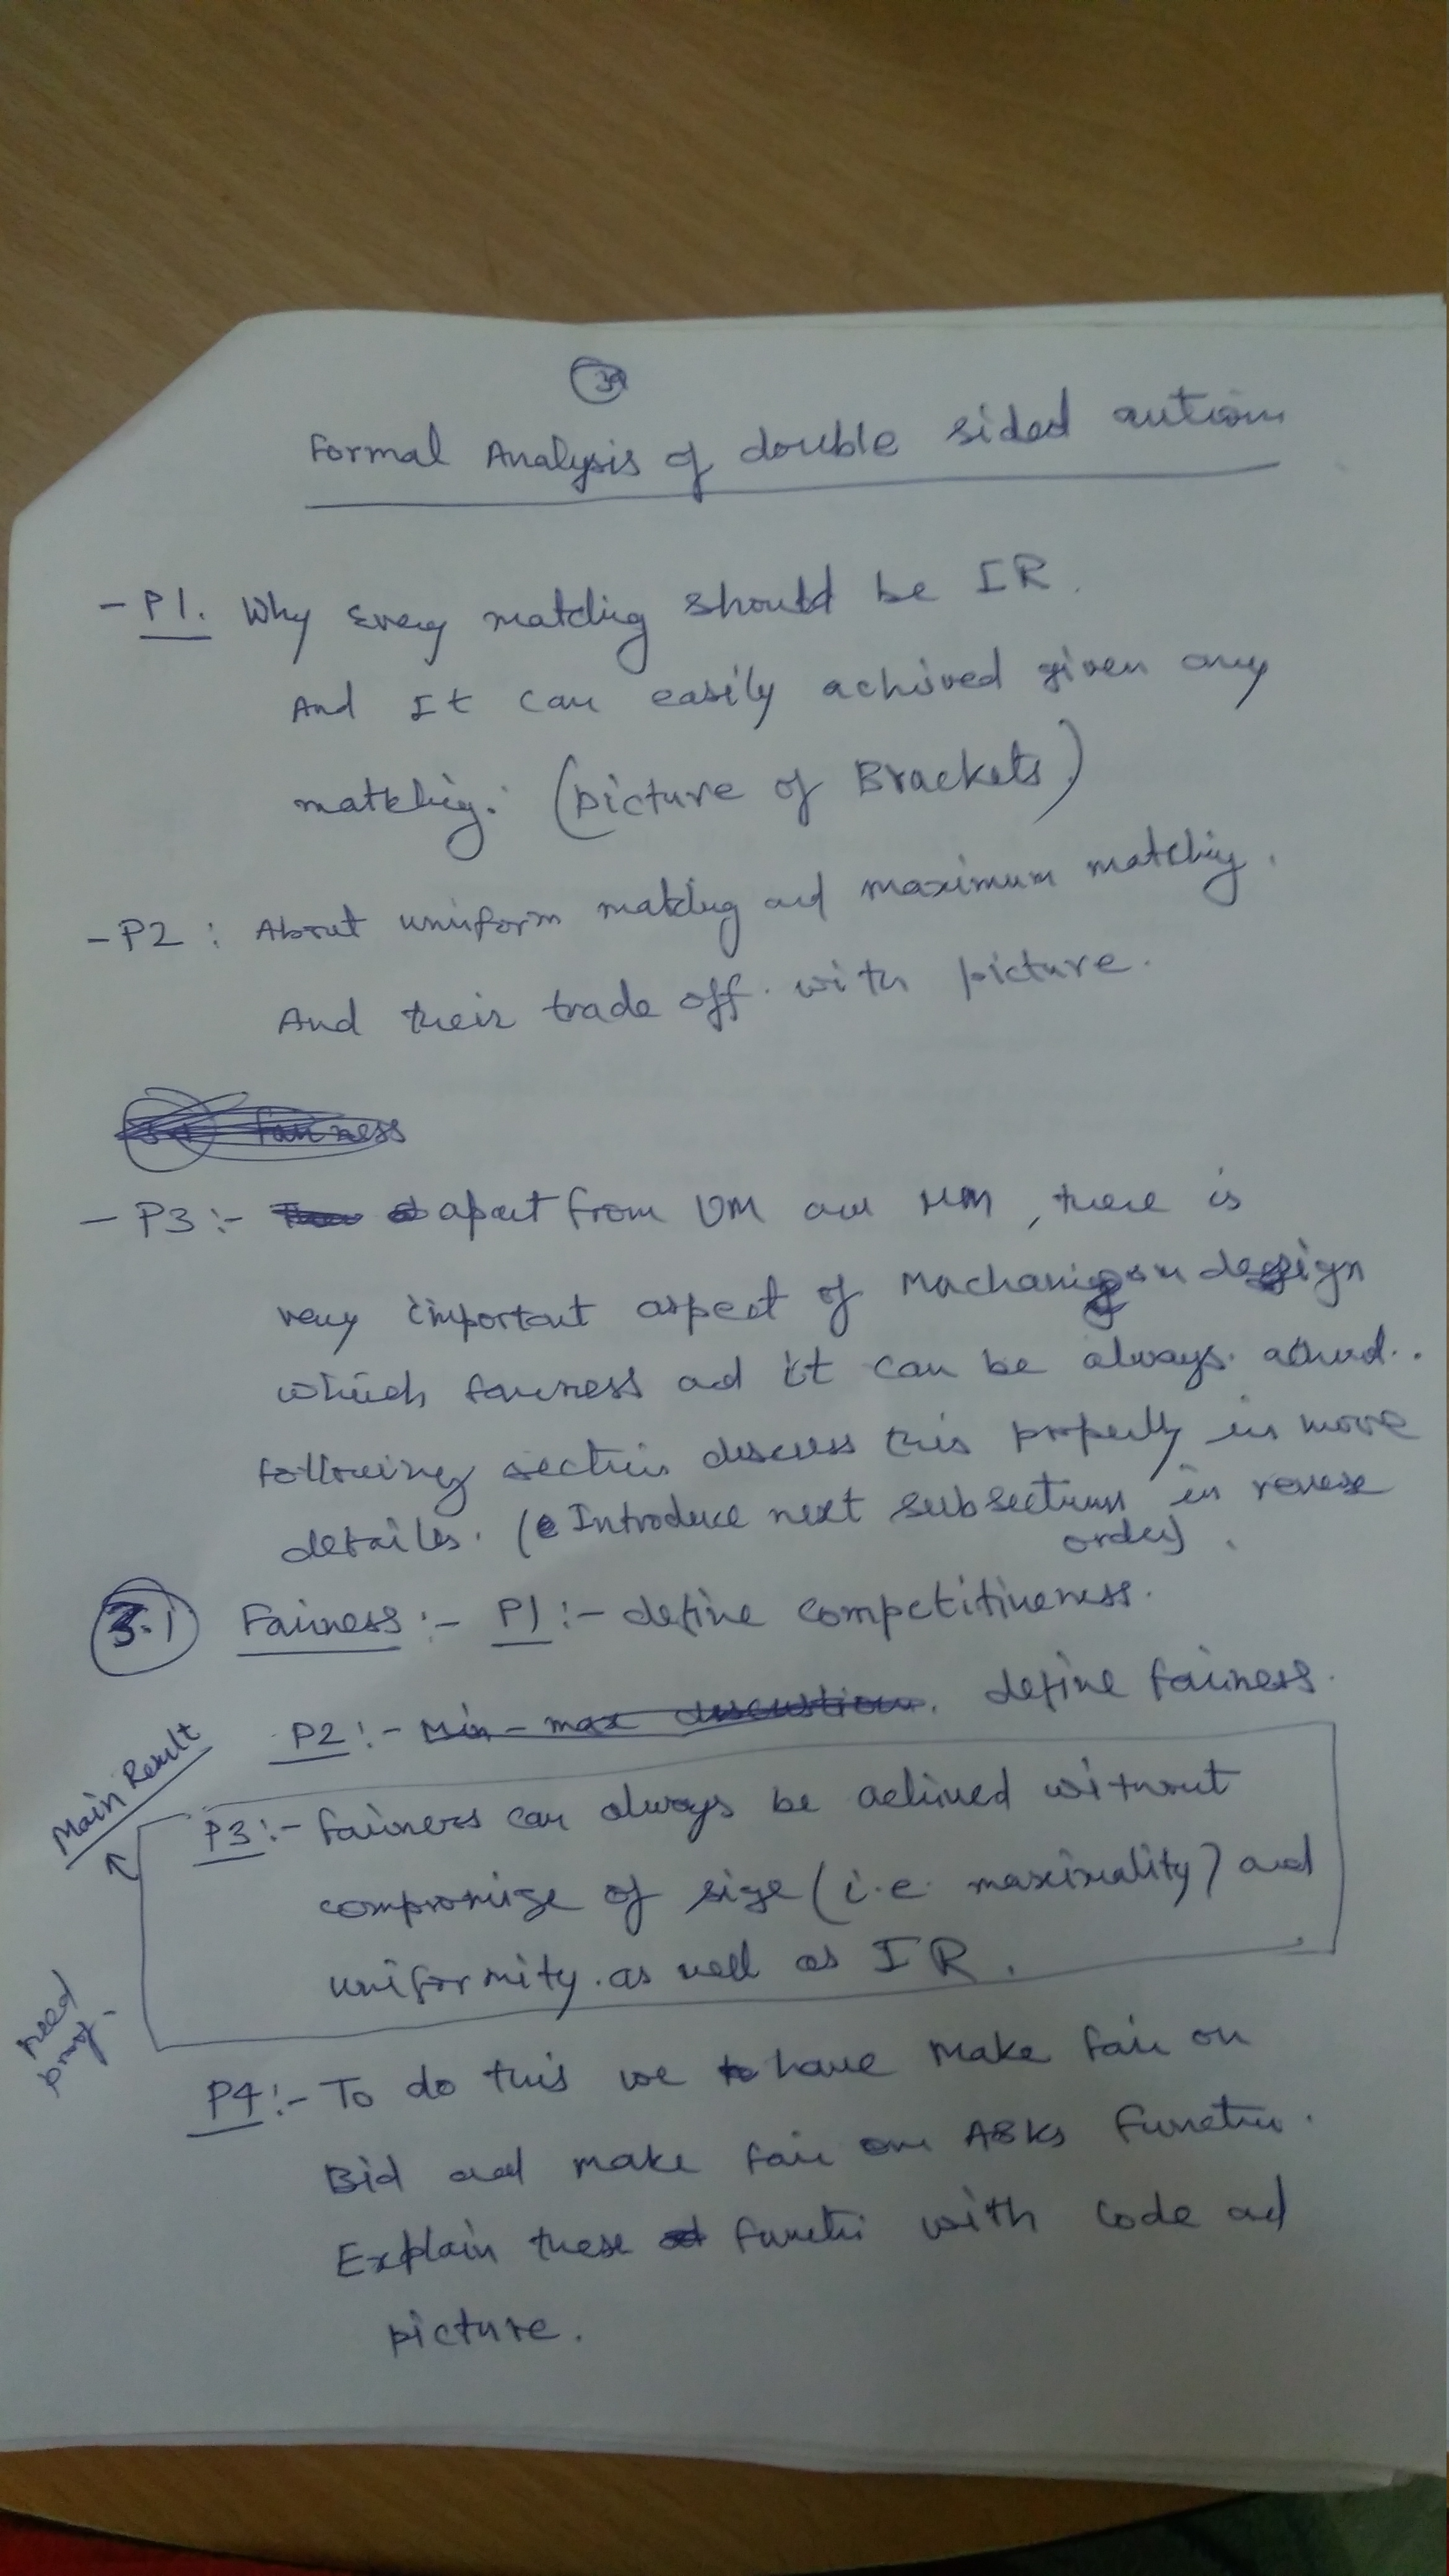 Formal Analysis of double sided aution
- P1. Why Every matching should be IR.
And It can easily achived given any
matching. (picture of Brackets)
- P2 : About uniform matching and maximum matching.
And their trade off. with picture.
fairness
- P3 :- apart from UM and MM, there is
very important aspect of Machanism design
which fairness ad it can be always
following section discuss this property in more
detailes. (Introduce next subsections in reverse
order).
3.1 Fairness :- P1 :- define competitiveness.
P2 :- Min-max discustion. define fairness.
Main Result
P3 :- fairness can always be achived without
compromise of size (i.e. maximality) and
uniformity. as well as IR.
need
proof -
P4 :- To do this we have Make fair on
Bid and make fair on ASKs function.
Explain these functi with code ad
picture.